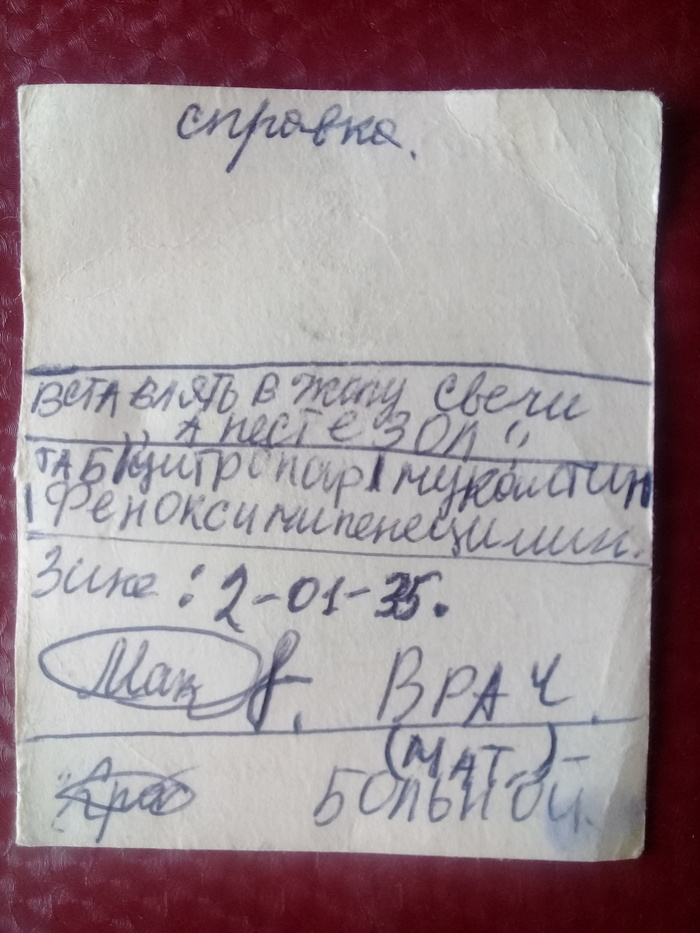 справка.
ВСТАВЛЯТЬ В Жопу свечи
„ Анестезол "
ТАБ цитропар мукалтин
Феноксимипенецилин.
Зика: 2-01-35.
Мак ВРАЧ.
(МАТ.)
БОЛЬНОЙ.